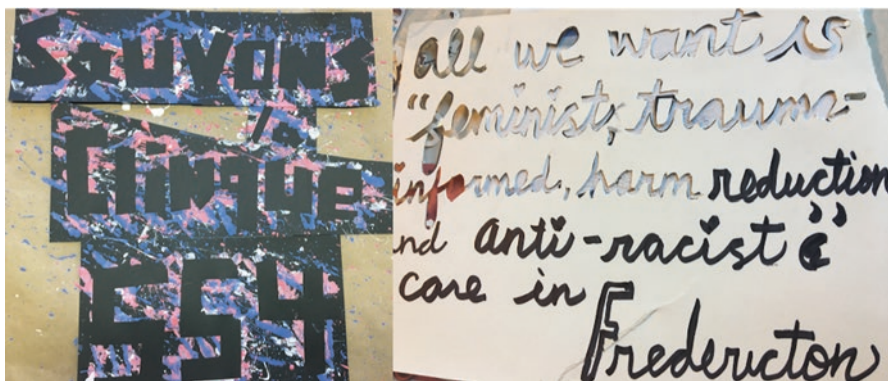 Sauvons
la
Clinque
554
all we want is
"feminist, trauma-
informed, harm reduction
nd anti-racist"
care in
Fredericton